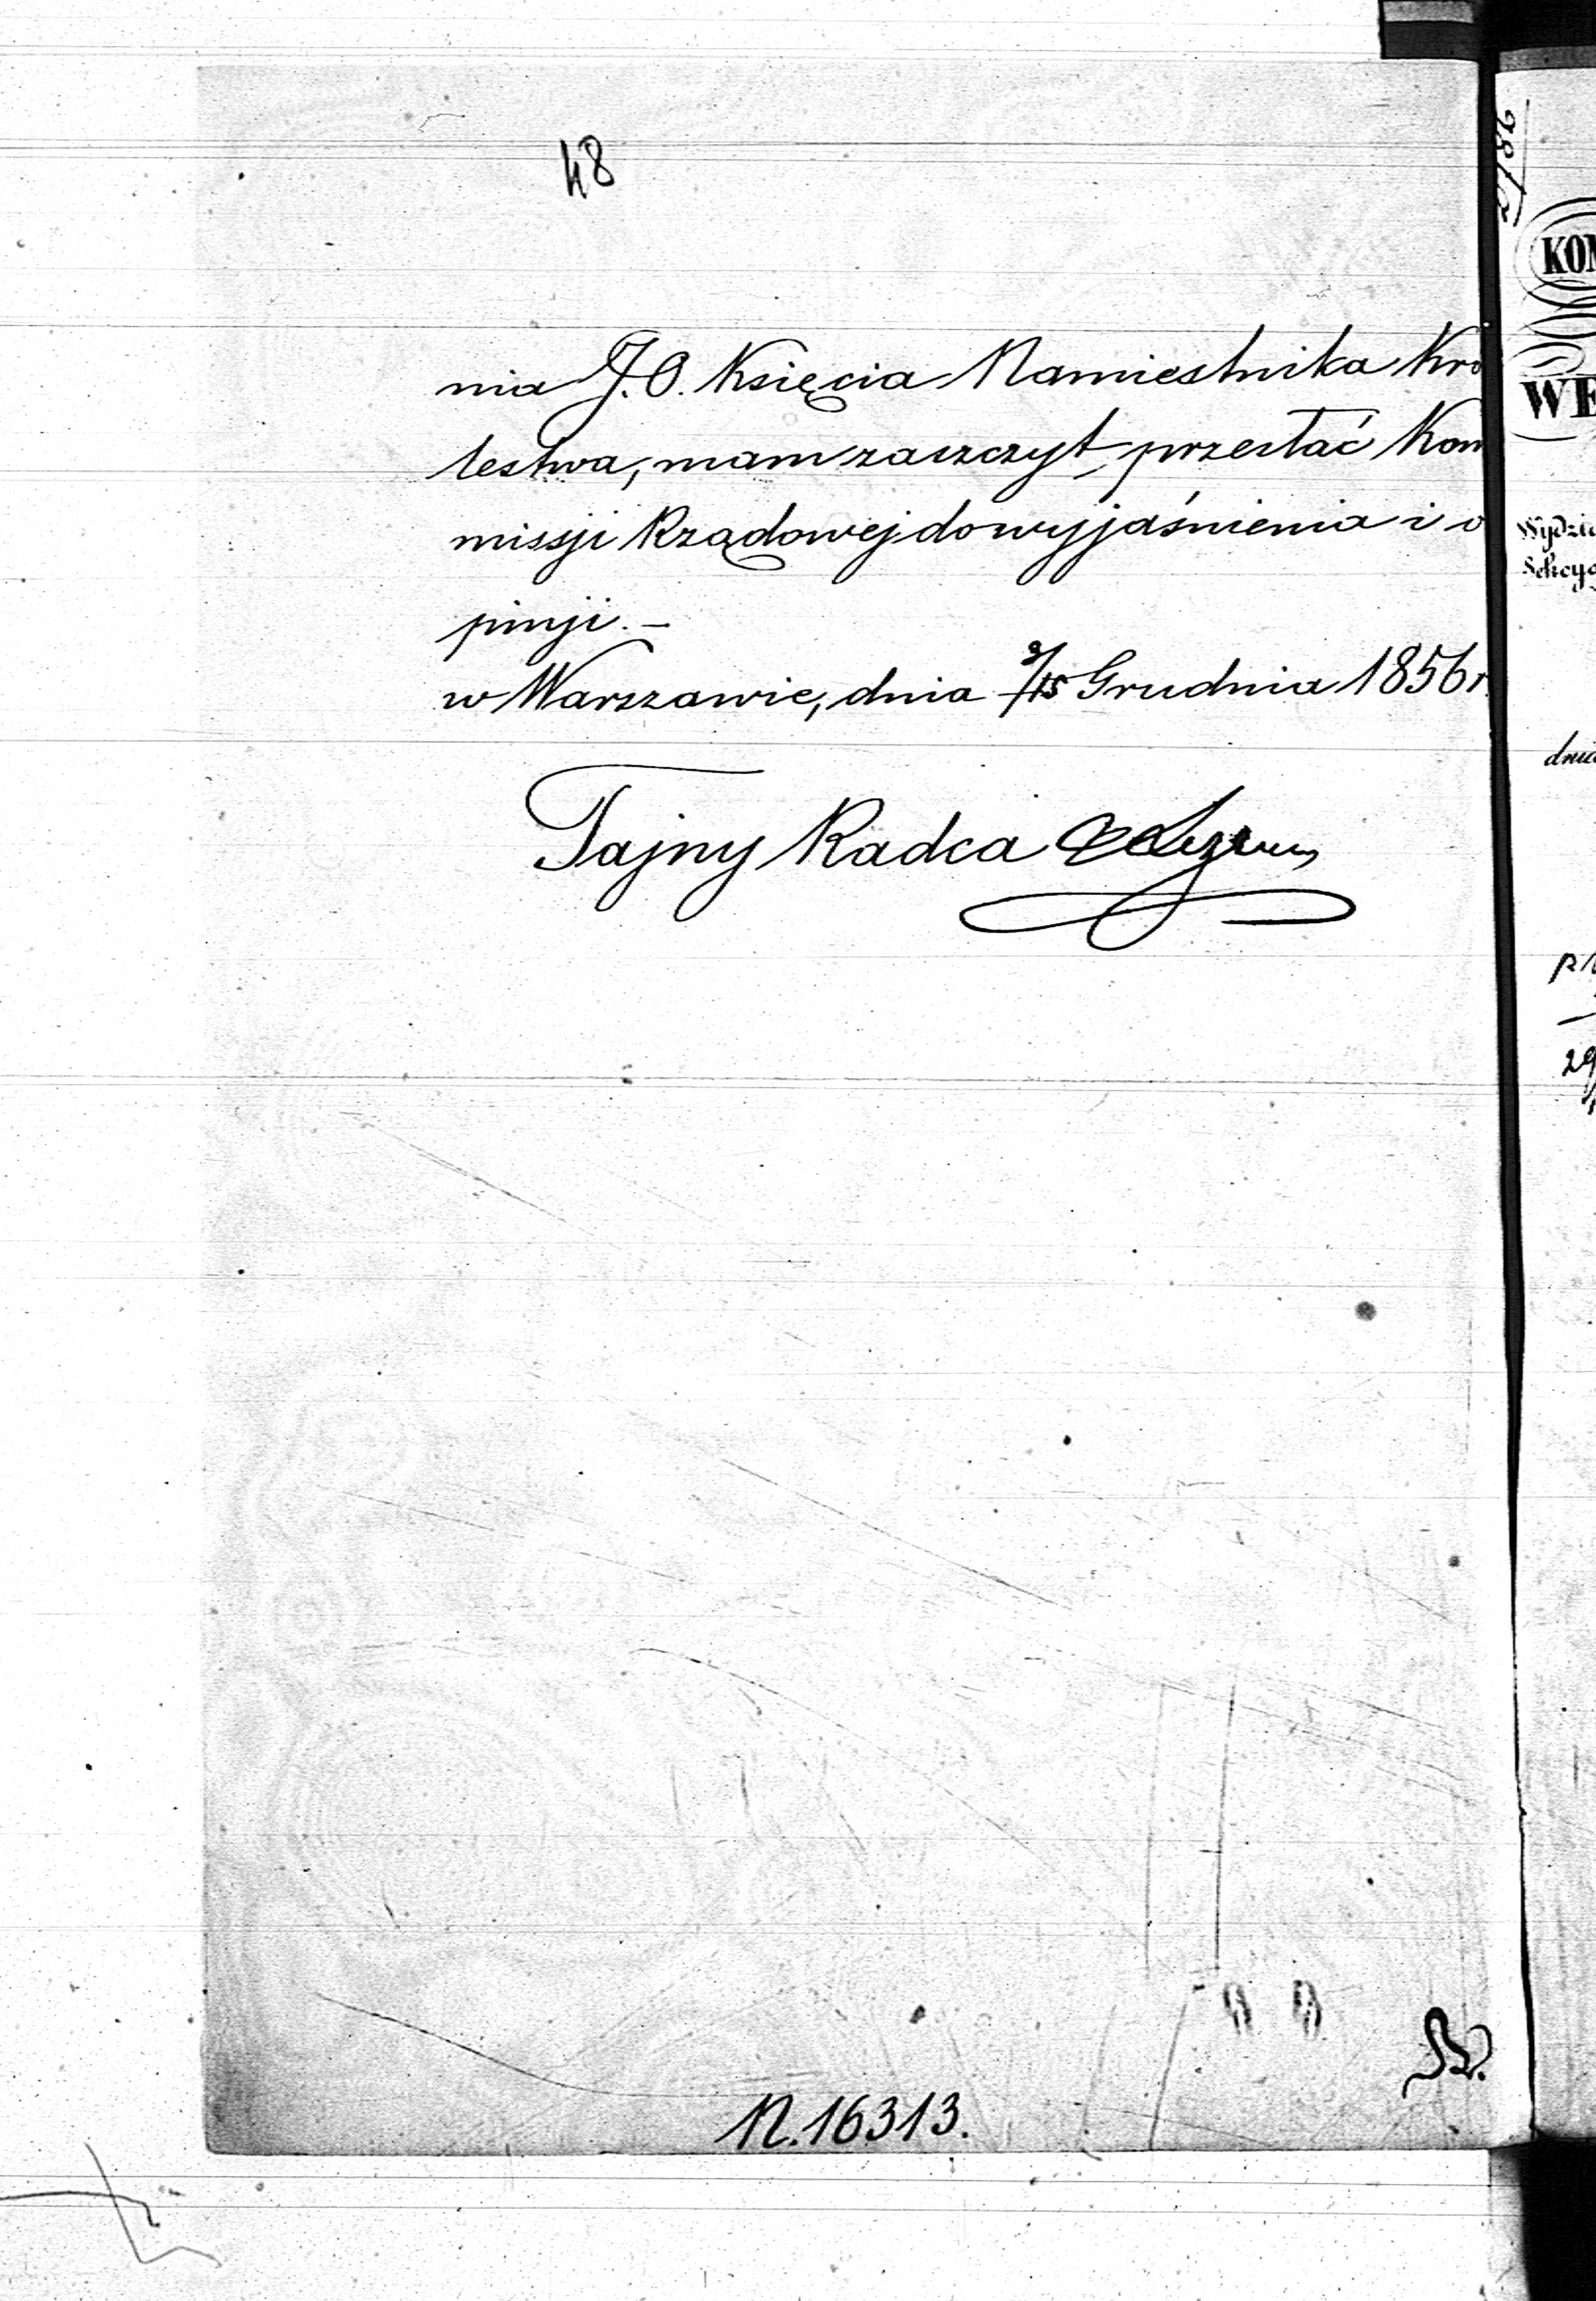 48
nia J.O. Księcia Namiestnika Kró
lestwa, mam zaszczyt przesłać Kom
missji Rządowej do wyjaśnienia i o
pinji. –
w Warszawie, dnia 3/15 Grudnia 1856 r.
Tajny Radca
N. 16313.
KOM
WE
Wydzia
Sekcya
dnia
29